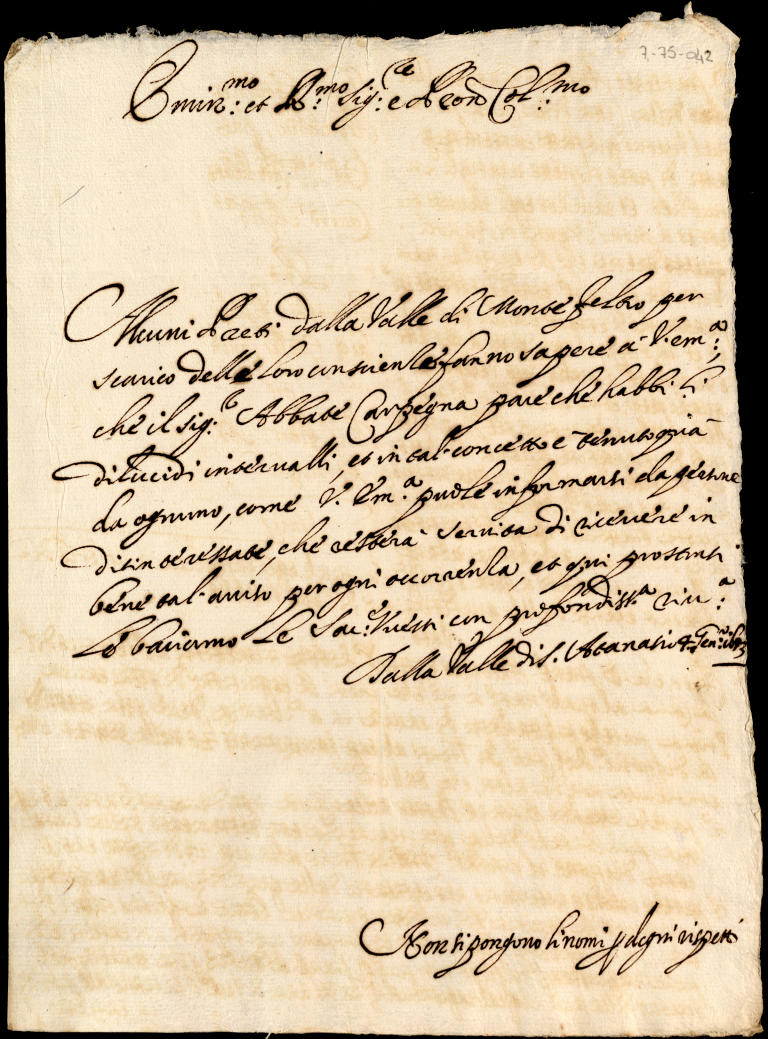 7-75-042
Emin.mo: et R.mo: Sig.re: e Pron Col.mo:
Alcuni Preti dalla Valle di Monte feltro per
scarico delle loro conscienze fanno sapere à V. em.a:,
che il sig.r Abbate Carpegna pare che habbi li
dilucidi intervalli, et in tal concetto è tenuto già
da ognuno, come V. Em.a puole informarsi da persone
disinteressate, che resterà servita di ricevere in
bene tal aviso per ogni occorrenza, et qui prostrati
Le baciamo Le Sac.e Vesti con profondiss.a riv.a:
Dalla Valle di S. Atanasio 4 Gen.o:
Non si pongono li nomi p degni rispetti